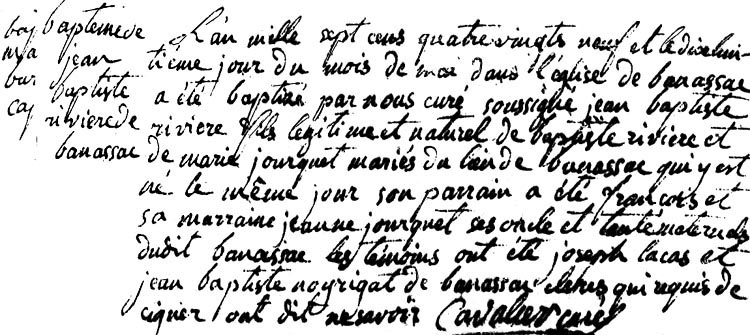 baptemede
jean
baptiste
rivierede
banassac
L'an mille sept cens quatre vingts neuf et le dixhui-
tième jour du mois de mai dans l'église de banassac
a été baptisé par nous curé soussigné jean baptiste
riviere fils legitime et naturel de baptiste riviere et
de marie jourquet mariés du lieu de banassac qui y est
né le même jour son parrain a été francois et
sa marraine jeanne jourquet ses oncle et tante maternels
dudit banassac les témoins ont été joseph lacas et
jean baptiste noyrigat de banassac qui requis de
signer ont dit ne savoir Cavalier curé